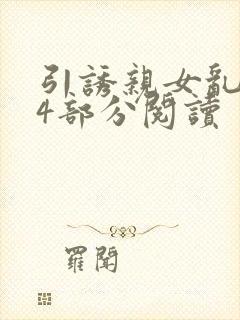 引誘親女亂
4部分閱讀
羅聞